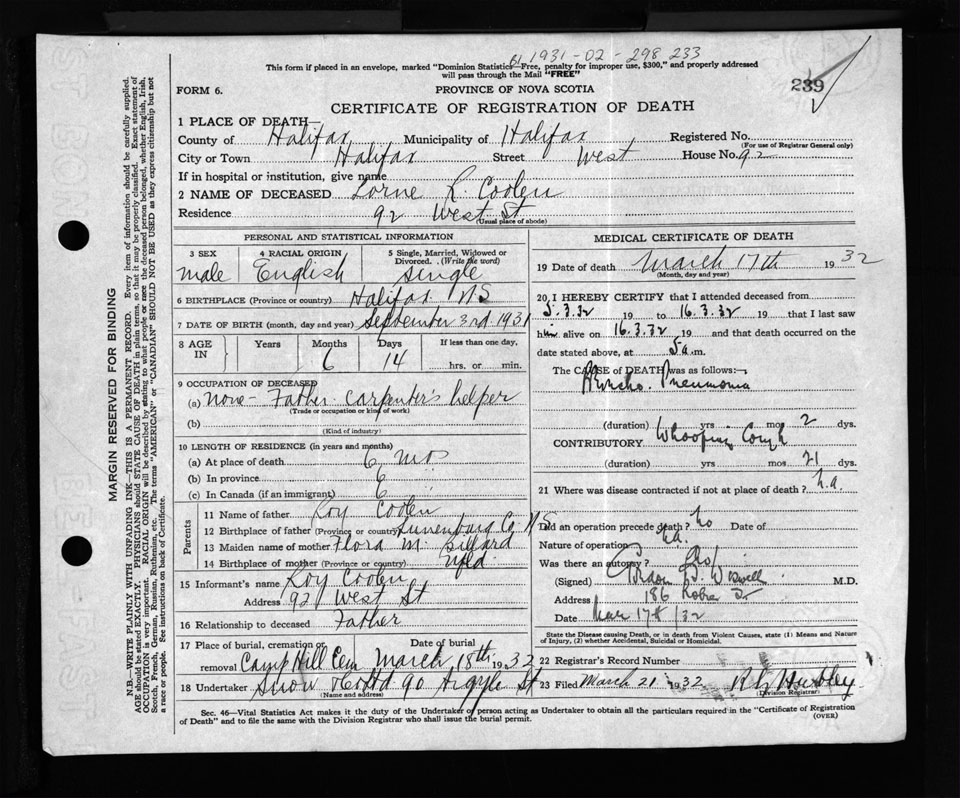 1931-02-298 233
This form if placed in an envelope, marked "Dominion Statistics—Free, penalty for improper use, $300," and properly addressed
will pass through the Mail "FREE"
239
FORM 6.
PROVINCE OF NOVA SCOTIA
CERTIFICATE OF REGISTRATION OF DEATH
1 PLACE OF DEATH—
County of Halifax Municipality of Halifax Registered No.
(For use of Registrar General only)
City or Town Halifax Street West House No. 92
If in hospital or institution, give name
2 NAME OF DECEASED Lorne L. Coolen
Residence 92 West St
(Usual place of abode)
PERSONAL AND STATISTICAL INFORMATION
3 SEX 4 RACIAL ORIGIN 5 Single, Married, Widowed or
Divorced. (Write the word)
male English single
6 BIRTHPLACE (Province or country) Halifax NS
7 DATE OF BIRTH (month, day and year) September 3rd 1931
8 AGE IN Years Months Days If less than one day,
6 14 hrs. or min.
9 OCCUPATION OF DECEASED
(a) none - Father carpenter's helper
(Trade or occupation or kind of work)
(b)
(Kind of industry)
10 LENGTH OF RESIDENCE (in years and months)
(a) At place of death 6 mos
(b) In province 6
(c) In Canada (if an immigrant) 6
Parents
11 Name of father Roy Coolen
12 Birthplace of father (Province or country) Lunenburg Co NS
13 Maiden name of mother Flora M. Billard
14 Birthplace of mother (Province or country) Nfld
15 Informant's name Roy Coolen
Address 92 West St
16 Relationship to deceased Father
17 Place of burial, cremation or Date of burial
removal Camp Hill Cem March 18th 1932
18 Undertaker Snow & Co Ltd 90 Argyle St
(Name and address)
MEDICAL CERTIFICATE OF DEATH
19 Date of death March 17th 1932
(Month, day and year)
20 I HEREBY CERTIFY that I attended deceased from
5.3.32 19 to 16.3.32 19 that I last saw
him alive on 16.3.32 19 and that death occurred on the
date stated above, at 5 a. m.
The CAUSE of DEATH was as follows:—
Broncho. Pneumonia
(duration) yrs mos 2 dys.
CONTRIBUTORY Whooping Cough
(duration) yrs mos 21 dys.
21 Where was disease contracted if not at place of death? n.a.
Did an operation precede death? no Date of
Nature of operation n.a.
Was there an autopsy? no
(Signed) M.D.
Address 186 St
Date Mar 17th /32
State the Disease causing Death, or in death from Violent Causes, state (1) Means and Nature
of Injury, (2) whether Accidental, Suicidal or Homicidal.
22 Registrar's Record Number
23 Filed March 21 1932
(Division Registrar)
Sec. 46—Vital Statistics Act makes it the duty of the Undertaker or person acting as Undertaker to obtain all the particulars required in the "Certificate of Registration
of Death" and to file the same with the Division Registrar who shall issue the burial permit.
(OVER)
MARGIN RESERVED FOR BINDING
N.B.—WRITE PLAINLY WITH UNFADING INK—THIS IS A PERMANENT RECORD. Every item of information should be carefully supplied.
AGE should be stated EXACTLY. PHYSICIANS should STATE CAUSE OF DEATH in plain terms, so that it may be properly classified. Exact statement of
OCCUPATION is very important. RACIAL ORIGIN will be described by stating to what people or race the deceased person belonged, whether English, Irish,
Scotch, French, German, Russian, Ruthenian, etc. The terms "AMERICAN" or "CANADIAN" SHOULD NOT BE USED as they express citizenship but not
a race or people. See instructions on back of Certificate.